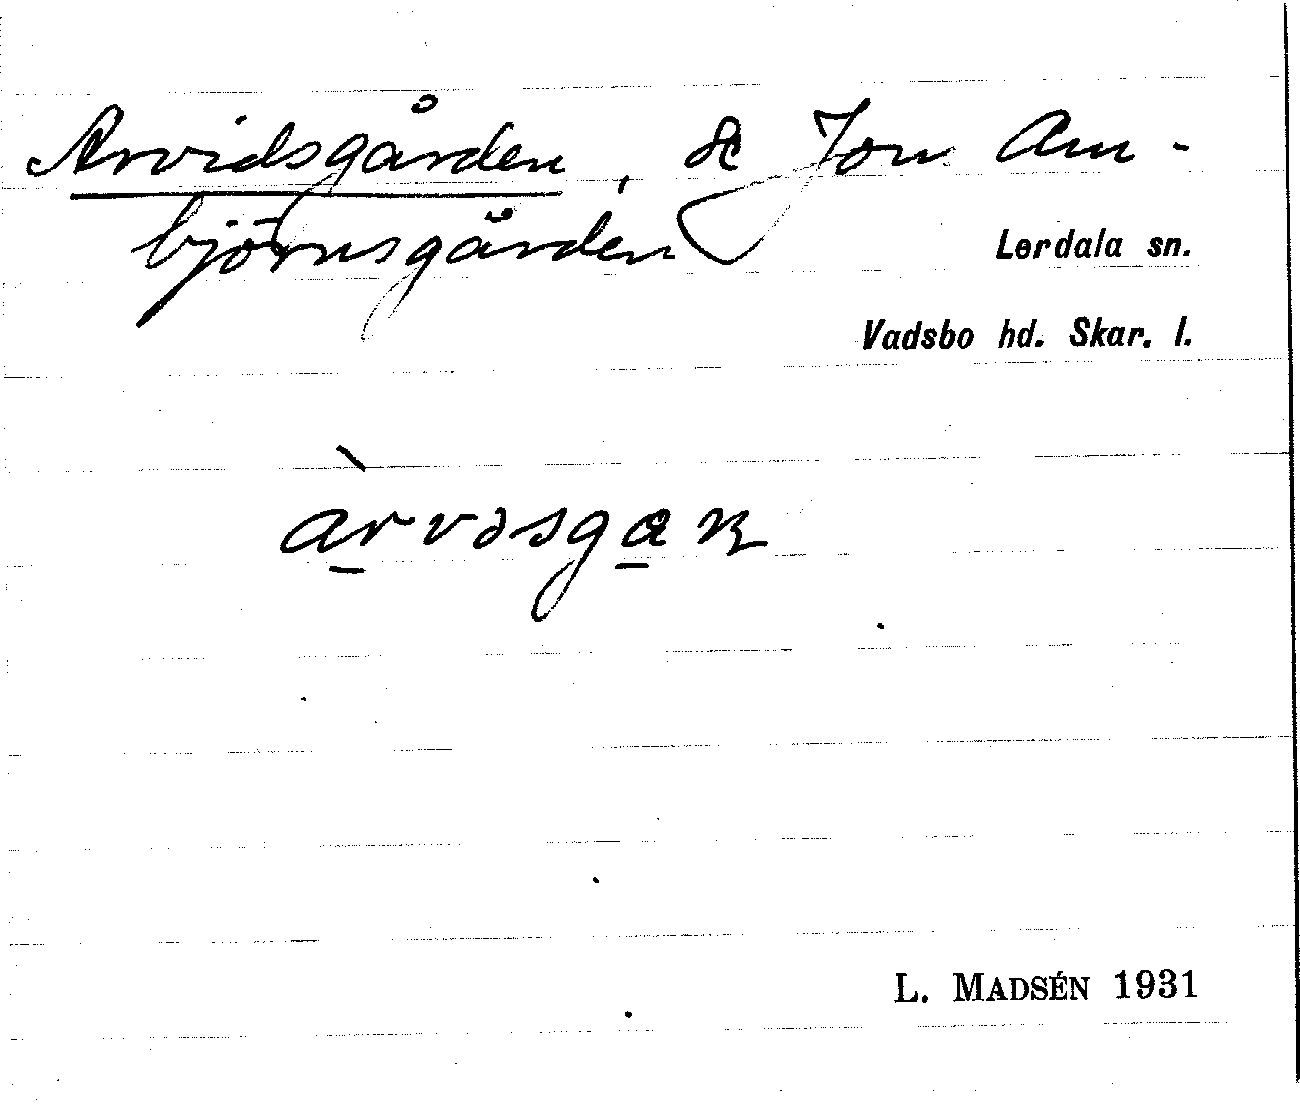 Arvidsgården, se Jon Am-
björnsgården
Lerdala sn.
Vadsbo hd. Skar. l.
L. MADSÉN 1931